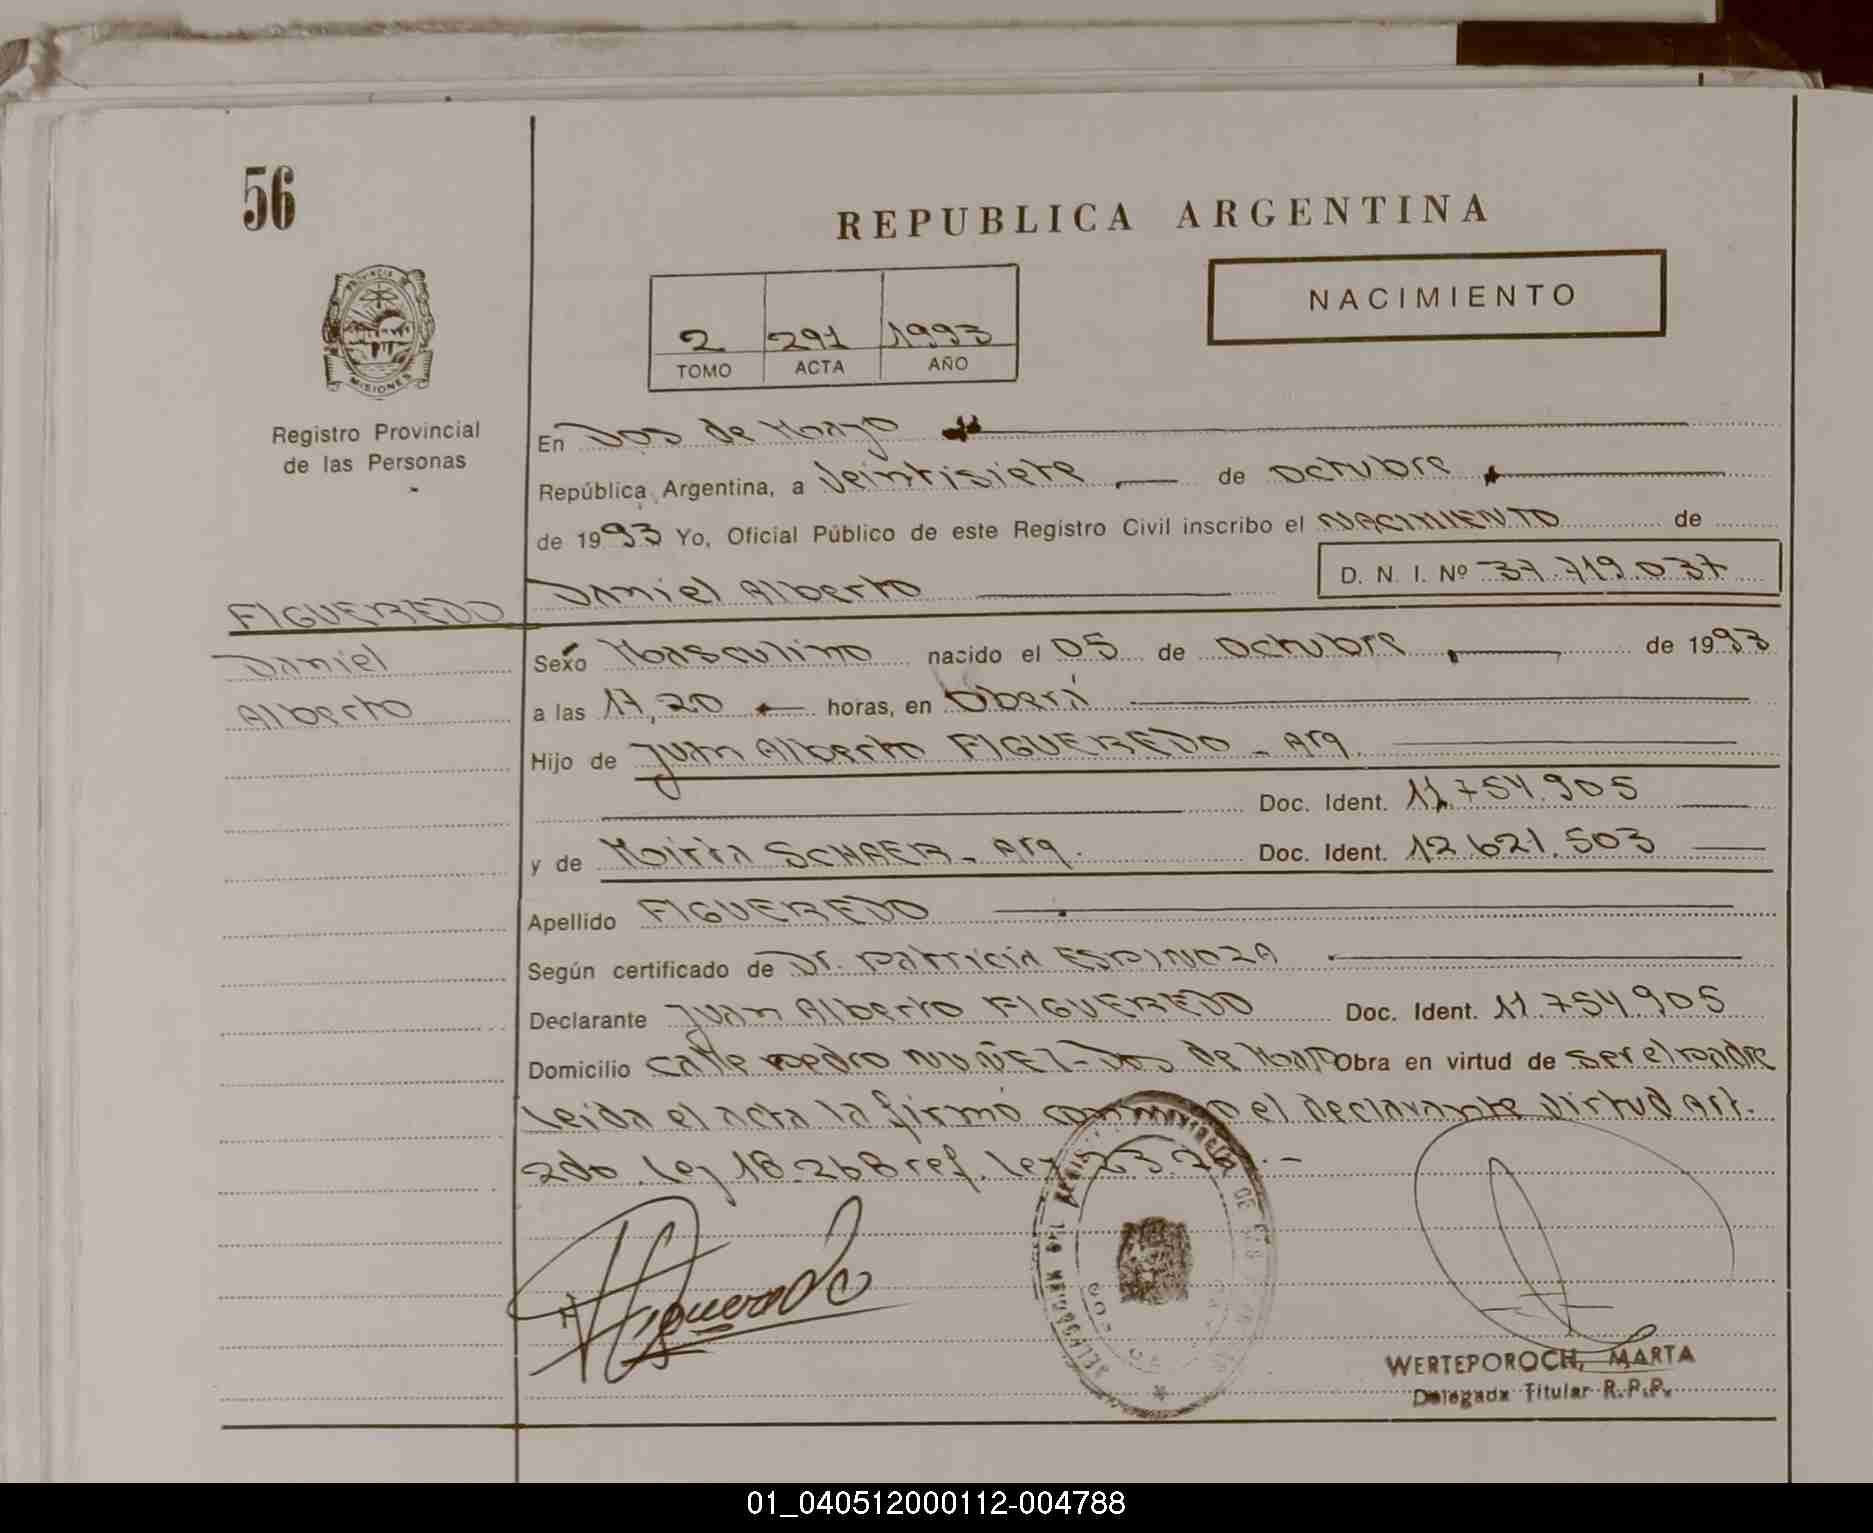 56
REPUBLICA ARGENTINA
NACIMIENTO
2 291 1993
TOMO ACTA AÑO
PROVINCIA DE
MISIONES
Registro Provincial
de las Personas
En Dos de Mayo
República Argentina, a Veintisiete de Octubre
de 1993 Yo, Oficial Público de este Registro Civil inscribo el NACIMIENTO de
Daniel Alberto D. N. I. Nº 37.719.037
FIGUEREDO
Daniel
Alberto
Sexo Masculino nacido el 05 de Octubre de 1993
a las 17,20 horas, en Oberá
Hijo de Juan Alberto FIGUEREDO - Arg.
Doc. Ident. 11.754.905
y de Mirra SCHAER - Arg. Doc. Ident. 12.621.503
Apellido FIGUEREDO
Según certificado de Dr. Patricia ESPINOZA
Declarante Juan Alberto FIGUEREDO Doc. Ident. 11.754.905
Domicilio Calle Pedro NUÑEZ - Dos de Mayo Obra en virtud de ser el padre
leída el acta la firmó conmigo el declarante virtud art.
2do. ley 18.268 ref. ley 23.2
Figueredo
WERTEPOROCH, MARTA
Delegada Titular R.P.P.
01_040512000112-004788